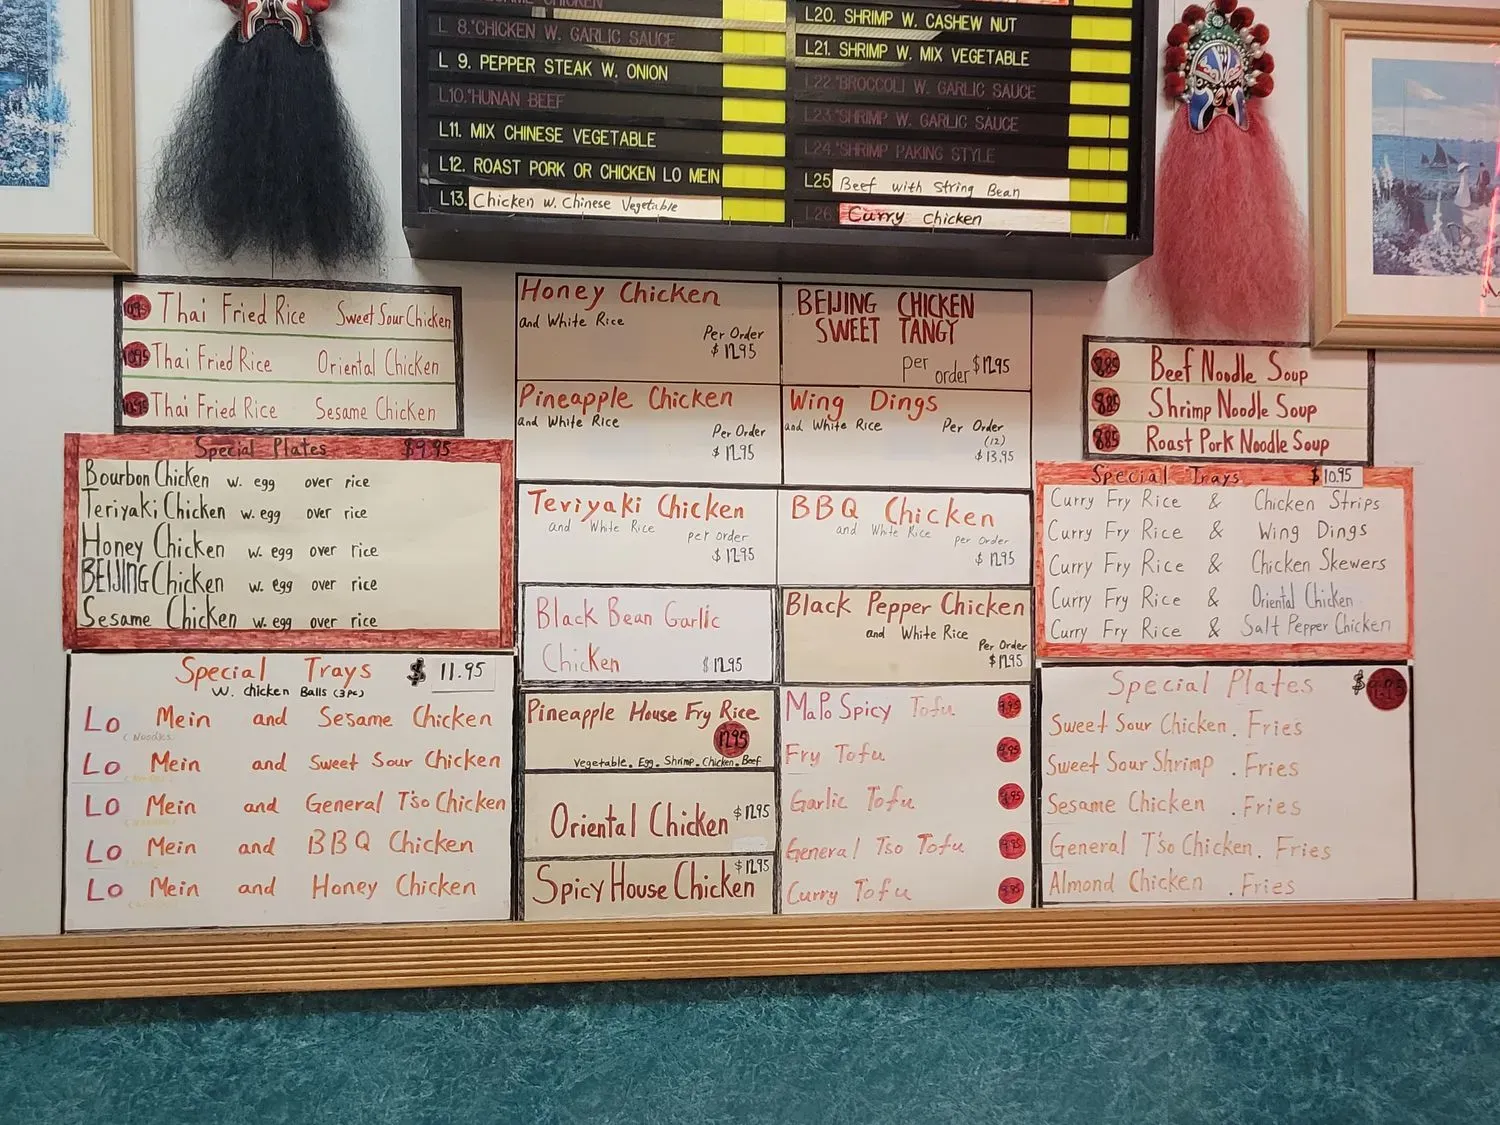 CHICKEN
L 8.*CHICKEN W. GARLIC SAUCE
L 9. PEPPER STEAK W. ONION
L10.*HUNAN BEEF
L11. MIX CHINESE VEGETABLE
L12. ROAST PORK OR CHICKEN LO MEIN
L13. Chicken w. Chinese Vegetable
L20. SHRIMP W. CASHEW NUT
L21. SHRIMP W. MIX VEGETABLE
L22.*BROCCOLI W. GARLIC SAUCE
L23.*SHRIMP W. GARLIC SAUCE
L24.*SHRIMP PAKING STYLE
L25 Beef with string Bean
L26. Curry chicken
Thai Fried Rice Sweet Sour Chicken
Thai Fried Rice Oriental Chicken
Thai Fried Rice Sesame Chicken
Special Plates $9.95
Bourbon Chicken w. egg over rice
Teriyaki Chicken w. egg over rice
Honey Chicken w. egg over rice
BEIJING Chicken w. egg over rice
Sesame Chicken w. egg over rice
Special Trays $ 11.95
w. chicken Balls (3pc)
Lo Mein and Sesame Chicken
(Noodles
Lo Mein and Sweet Sour Chicken
Lo Mein and General T'so Chicken
Lo Mein and BBQ Chicken
Lo Mein and Honey Chicken
Honey Chicken
and White Rice
Per Order
$ 12.95
BEIJING CHICKEN
SWEET TANGY
per order $12.95
Pineapple Chicken
and White Rice
Per Order
$ 12.95
Wing Dings
and White Rice Per Order
(12)
$ 13.95
Teriyaki Chicken
and White Rice per order
$ 12.95
BBQ Chicken
and White Rice per order
$ 12.95
Black Bean Garlic
Chicken $12.95
Black Pepper Chicken
and White Rice
Per Order
$12.95
Pineapple House Fry Rice
12.95
Vegetable. Egg. Shrimp. Chicken. Beef
Oriental Chicken $12.95
Spicy House Chicken $12.95
MaPo Spicy Tofu 9.95
Fry Tofu 9.95
Garlic Tofu 9.95
General Tso Tofu 9.95
Curry Tofu 9.95
8.85 Beef Noodle Soup
8.85 Shrimp Noodle Soup
8.85 Roast Pork Noodle Soup
Special Trays $10.95
Curry Fry Rice & Chicken Strips
Curry Fry Rice & Wing Dings
Curry Fry Rice & Chicken Skewers
Curry Fry Rice & Oriental Chicken
Curry Fry Rice & Salt Pepper Chicken
Special Plates $
Sweet Sour Chicken . Fries
Sweet Sour Shrimp . Fries
Sesame Chicken . Fries
General T'so Chicken. Fries
Almond Chicken . Fries